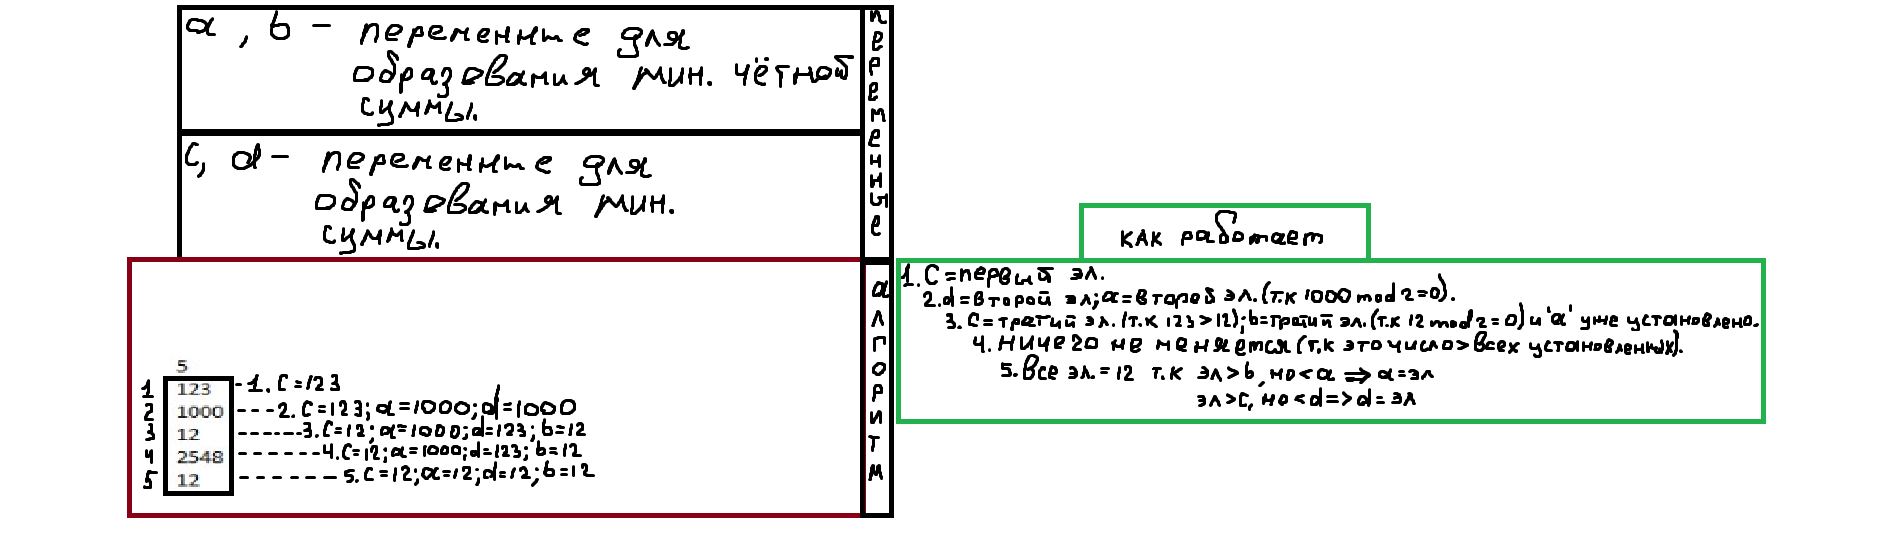 a, b - переменные для
образования мин. чётной
суммы.
c, d - переменные для
образования мин.
суммы.
переменные
алгоритм
5
1 123 -1. C=123
2 1000 ---2. C=123; a=1000; d=1000
3 12 ------3. C=12; a=1000; d=123; b=12
4 2548 -------4. C=12; a=1000; d=123; b=12
5 12 -------5. C=12; a=12; d=12; b=12
как работает
1. C=первый эл.
2. d=второй эл; a=второй эл. (т.к 1000 mod 2=0).
3. C=третий эл. (т.к 123>12); b=третий эл. (т.к 12 mod 2=0) и 'a' уже установлено.
4. ничего не меняется (т.к это число > всех установленных).
5. Все эл. = 12 т.к эл>b, но <a => a=эл
эл>C, но <d => d=эл